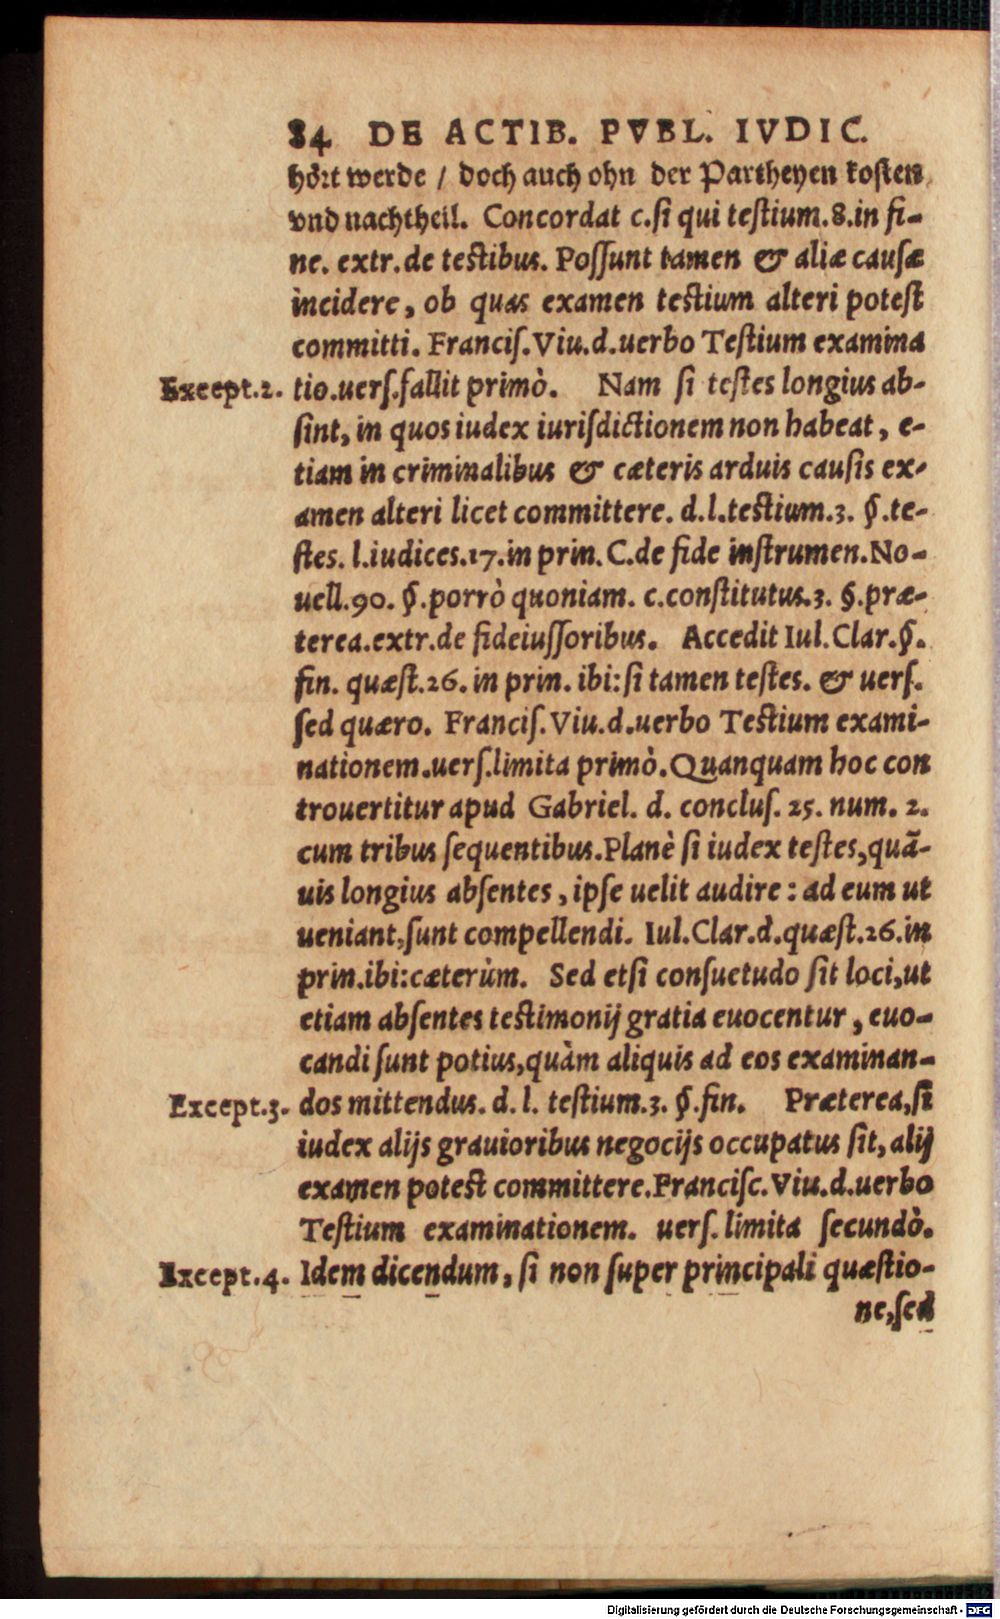 84 DE ACTIB. PVBL. IVDIC.
hört werde / doch auch ohn der Partheyen kosten
vnd nachtheil. Concordat c.ſi qui teſtium.8.in fi-
ne. extr.de teſtibus. Poſſunt tamen & aliæ cauſæ
incidere, ob quas examen teſtium alteri poteſt
committi. Franciſ.Viu.d.uerbo Teſtium examina
Except.2. tio.uerſ.fallit primò. Nam ſi teſtes longius ab-
ſint, in quos iudex iuriſdictionem non habeat, e-
tiam in criminalibus & cæteris arduis cauſis ex-
amen alteri licet committere. d.l.teſtium.3. §.te-
ſtes. l.iudices.17.in prin. C.de fide inſtrumen.No-
uell.90. §.porrò quoniam. c.conſtitutus.3. §.præ-
terea.extr.de fideiuſſoribus. Accedit Iul.Clar.§.
fin. quæſt.26. in prin. ibi: ſi tamen teſtes. & uerſ.
ſed quæro. Franciſ.Viu.d.uerbo Teſtium exami-
nationem.uerſ.limita primò. Quanquam hoc con
trouertitur apud Gabriel. d. concluſ. 25. num. 2.
cum tribus ſequentibus.Planè ſi iudex teſtes,quã-
uis longius abſentes, ipſe uelit audire: ad eum ut
ueniant,ſunt compellendi. Iul.Clar.d.quæſt.26.in
prin.ibi:cæterùm. Sed etſi conſuetudo ſit loci,ut
etiam abſentes teſtimonij gratia euocentur, euo-
candi ſunt potius,quàm aliquis ad eos examinan-
Except.3. dos mittendus. d. l. teſtium.3. §.fin. Præterea,ſi
iudex alijs grauioribus negocijs occupatus ſit, alij
examen poteſt committere.Franciſc.Viu.d.uerbo
Teſtium examinationem. uerſ. limita ſecundò.
Except.4. Idem dicendum, ſi non ſuper principali quæſtio-
ne,ſed
Digitalisierung gefördert durch die Deutsche Forschungsgemeinschaft - DFG